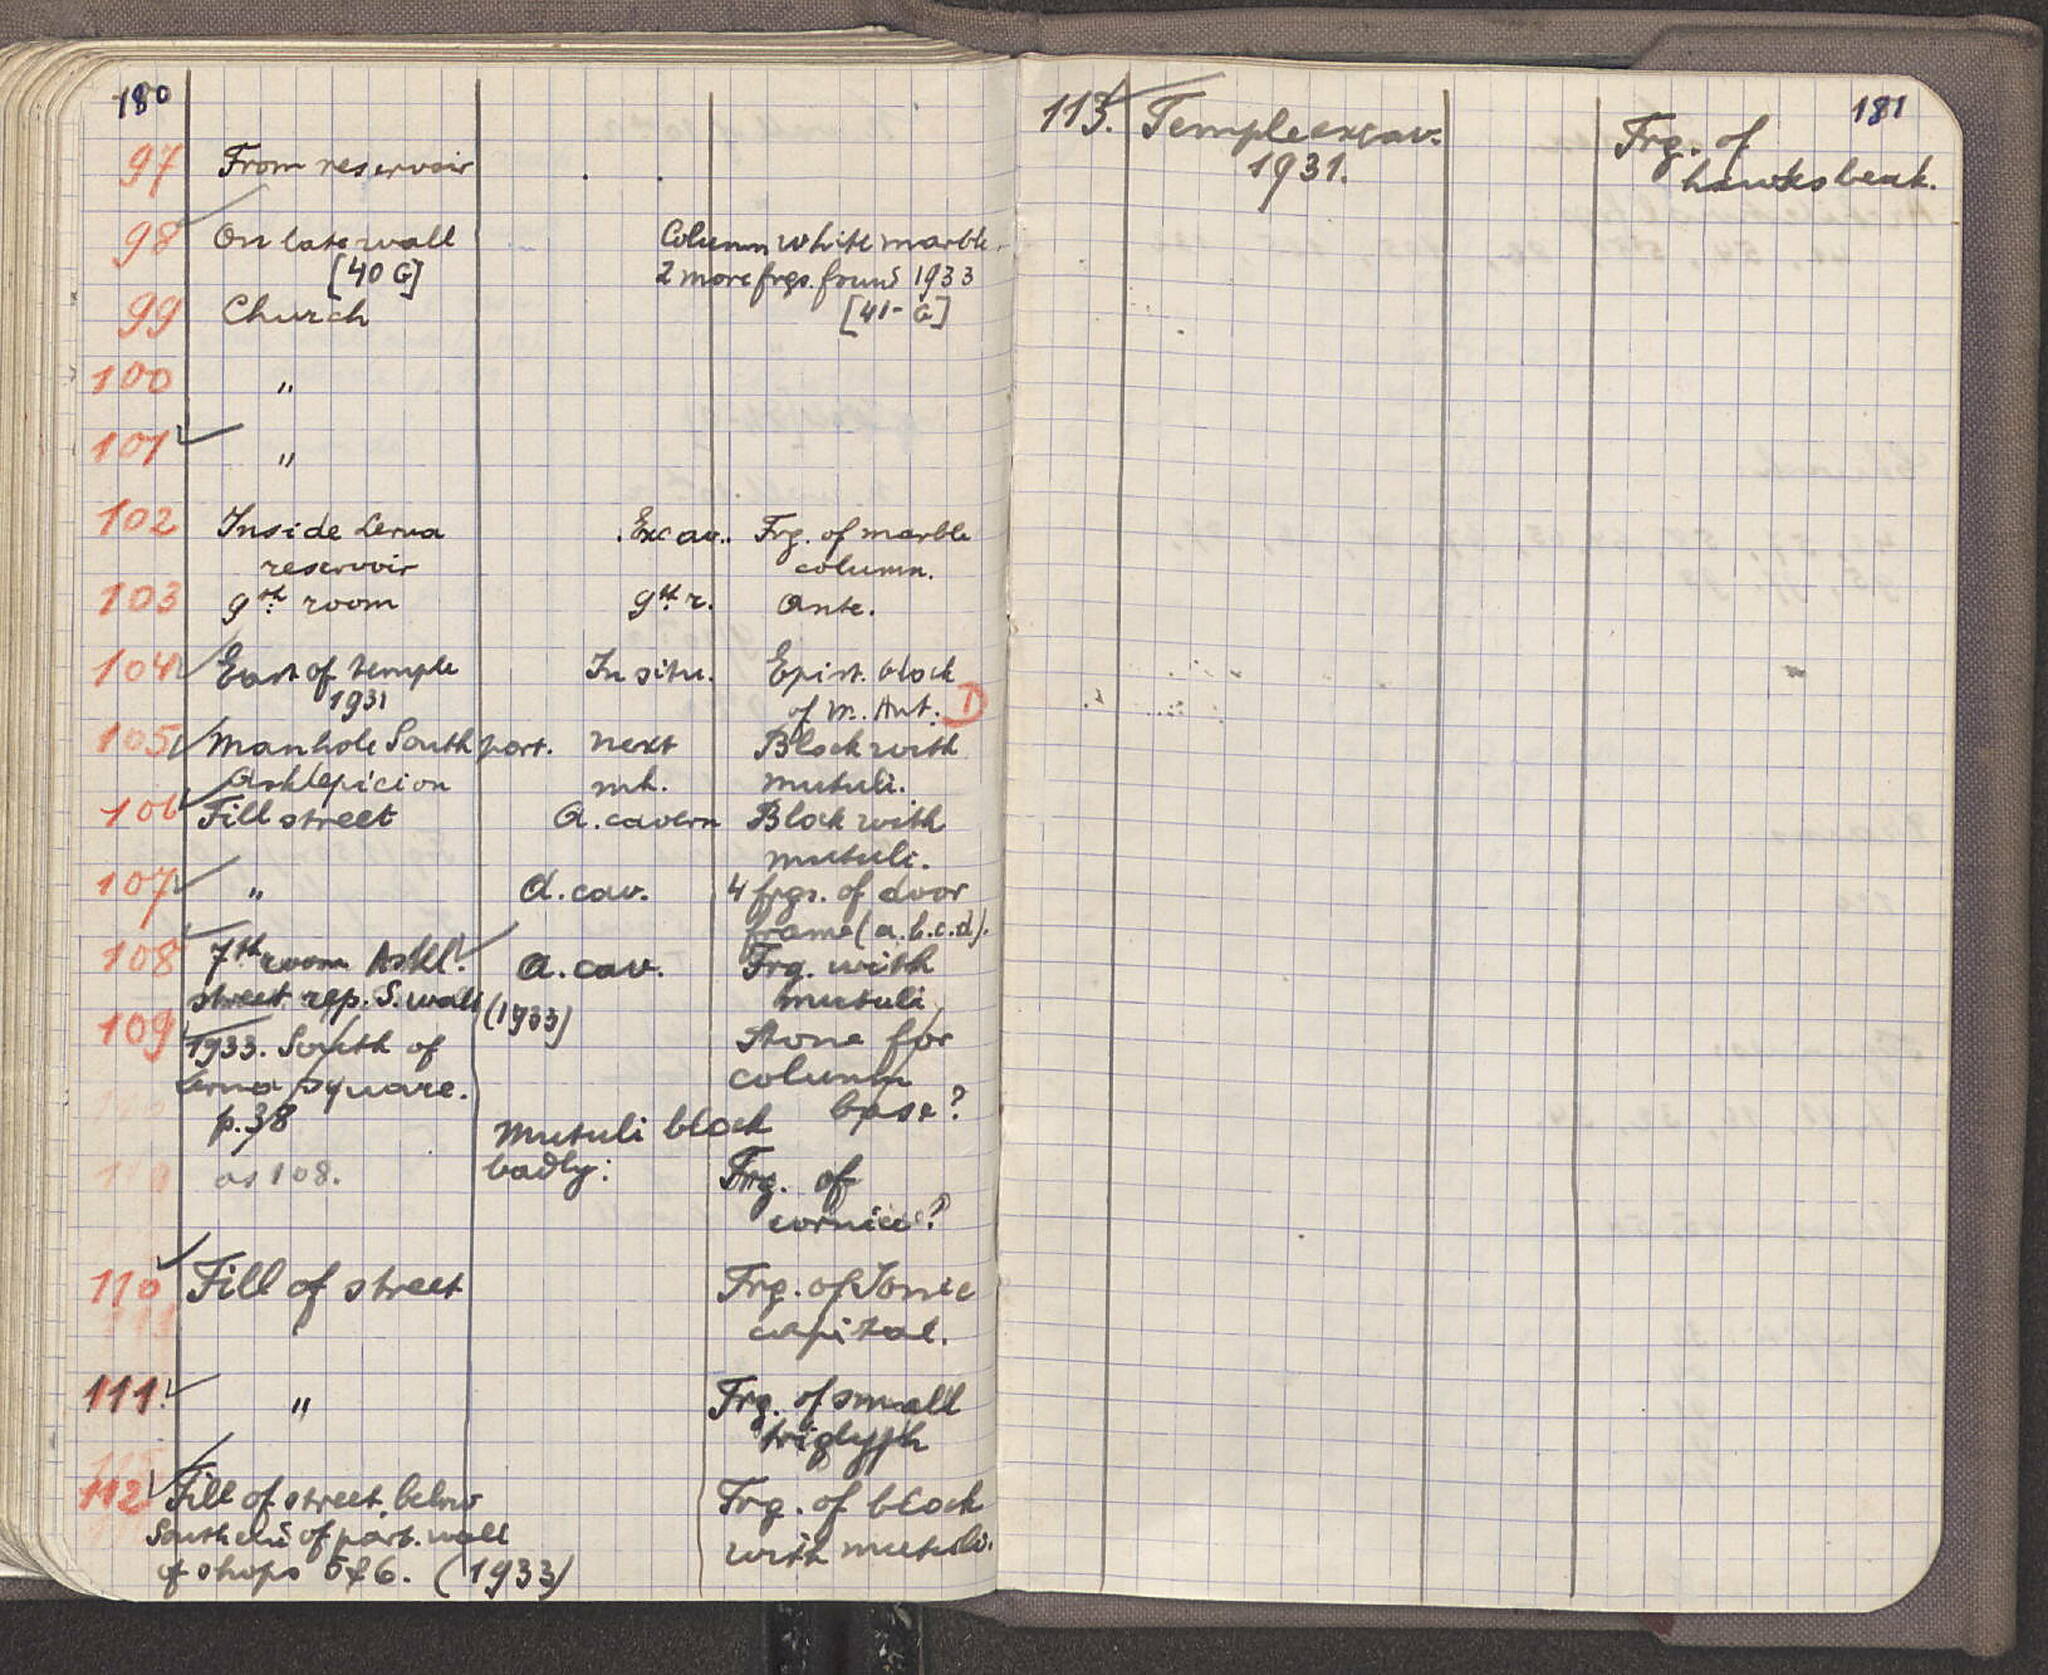 180
97 From reservoir
98 On late wall Column white marble.
[40 G] 2 more frgs. found 1933
99 Church [41-G]
100 "
101 "
102 Inside Lerna Excav. Frg. of marble
reservoir column.
103 9th room 9th r. Ante.
104 East of temple In situ. Epist. block
1931 of m. Ant. D
105 Manhole South port. next Block with
Asklepieion mh. mutuli.
106 Fill street A. cavern Block with
mutuli.
107 " A. cav. 4 frgs. of door
frame (a.b.c.d).
108 7th room Askl. A. cav. Frg. with
street rep. S. wall (1933) mutuli
109 1933. South of Stone for
Lerna square. column
p. 38 Mutuli block base?
110 as 108. badly: Frg. of
cornice?
110 Fill of street Frg. of Ionic
111 capital.
111. " Frg. of small
triglyph
112 Fill of street below Frg. of block
South end of part. wall with mutuli.
of shops 5 & 6. (1933)
181
113. Temple excav. Frg. of
1931. hawksbeak.